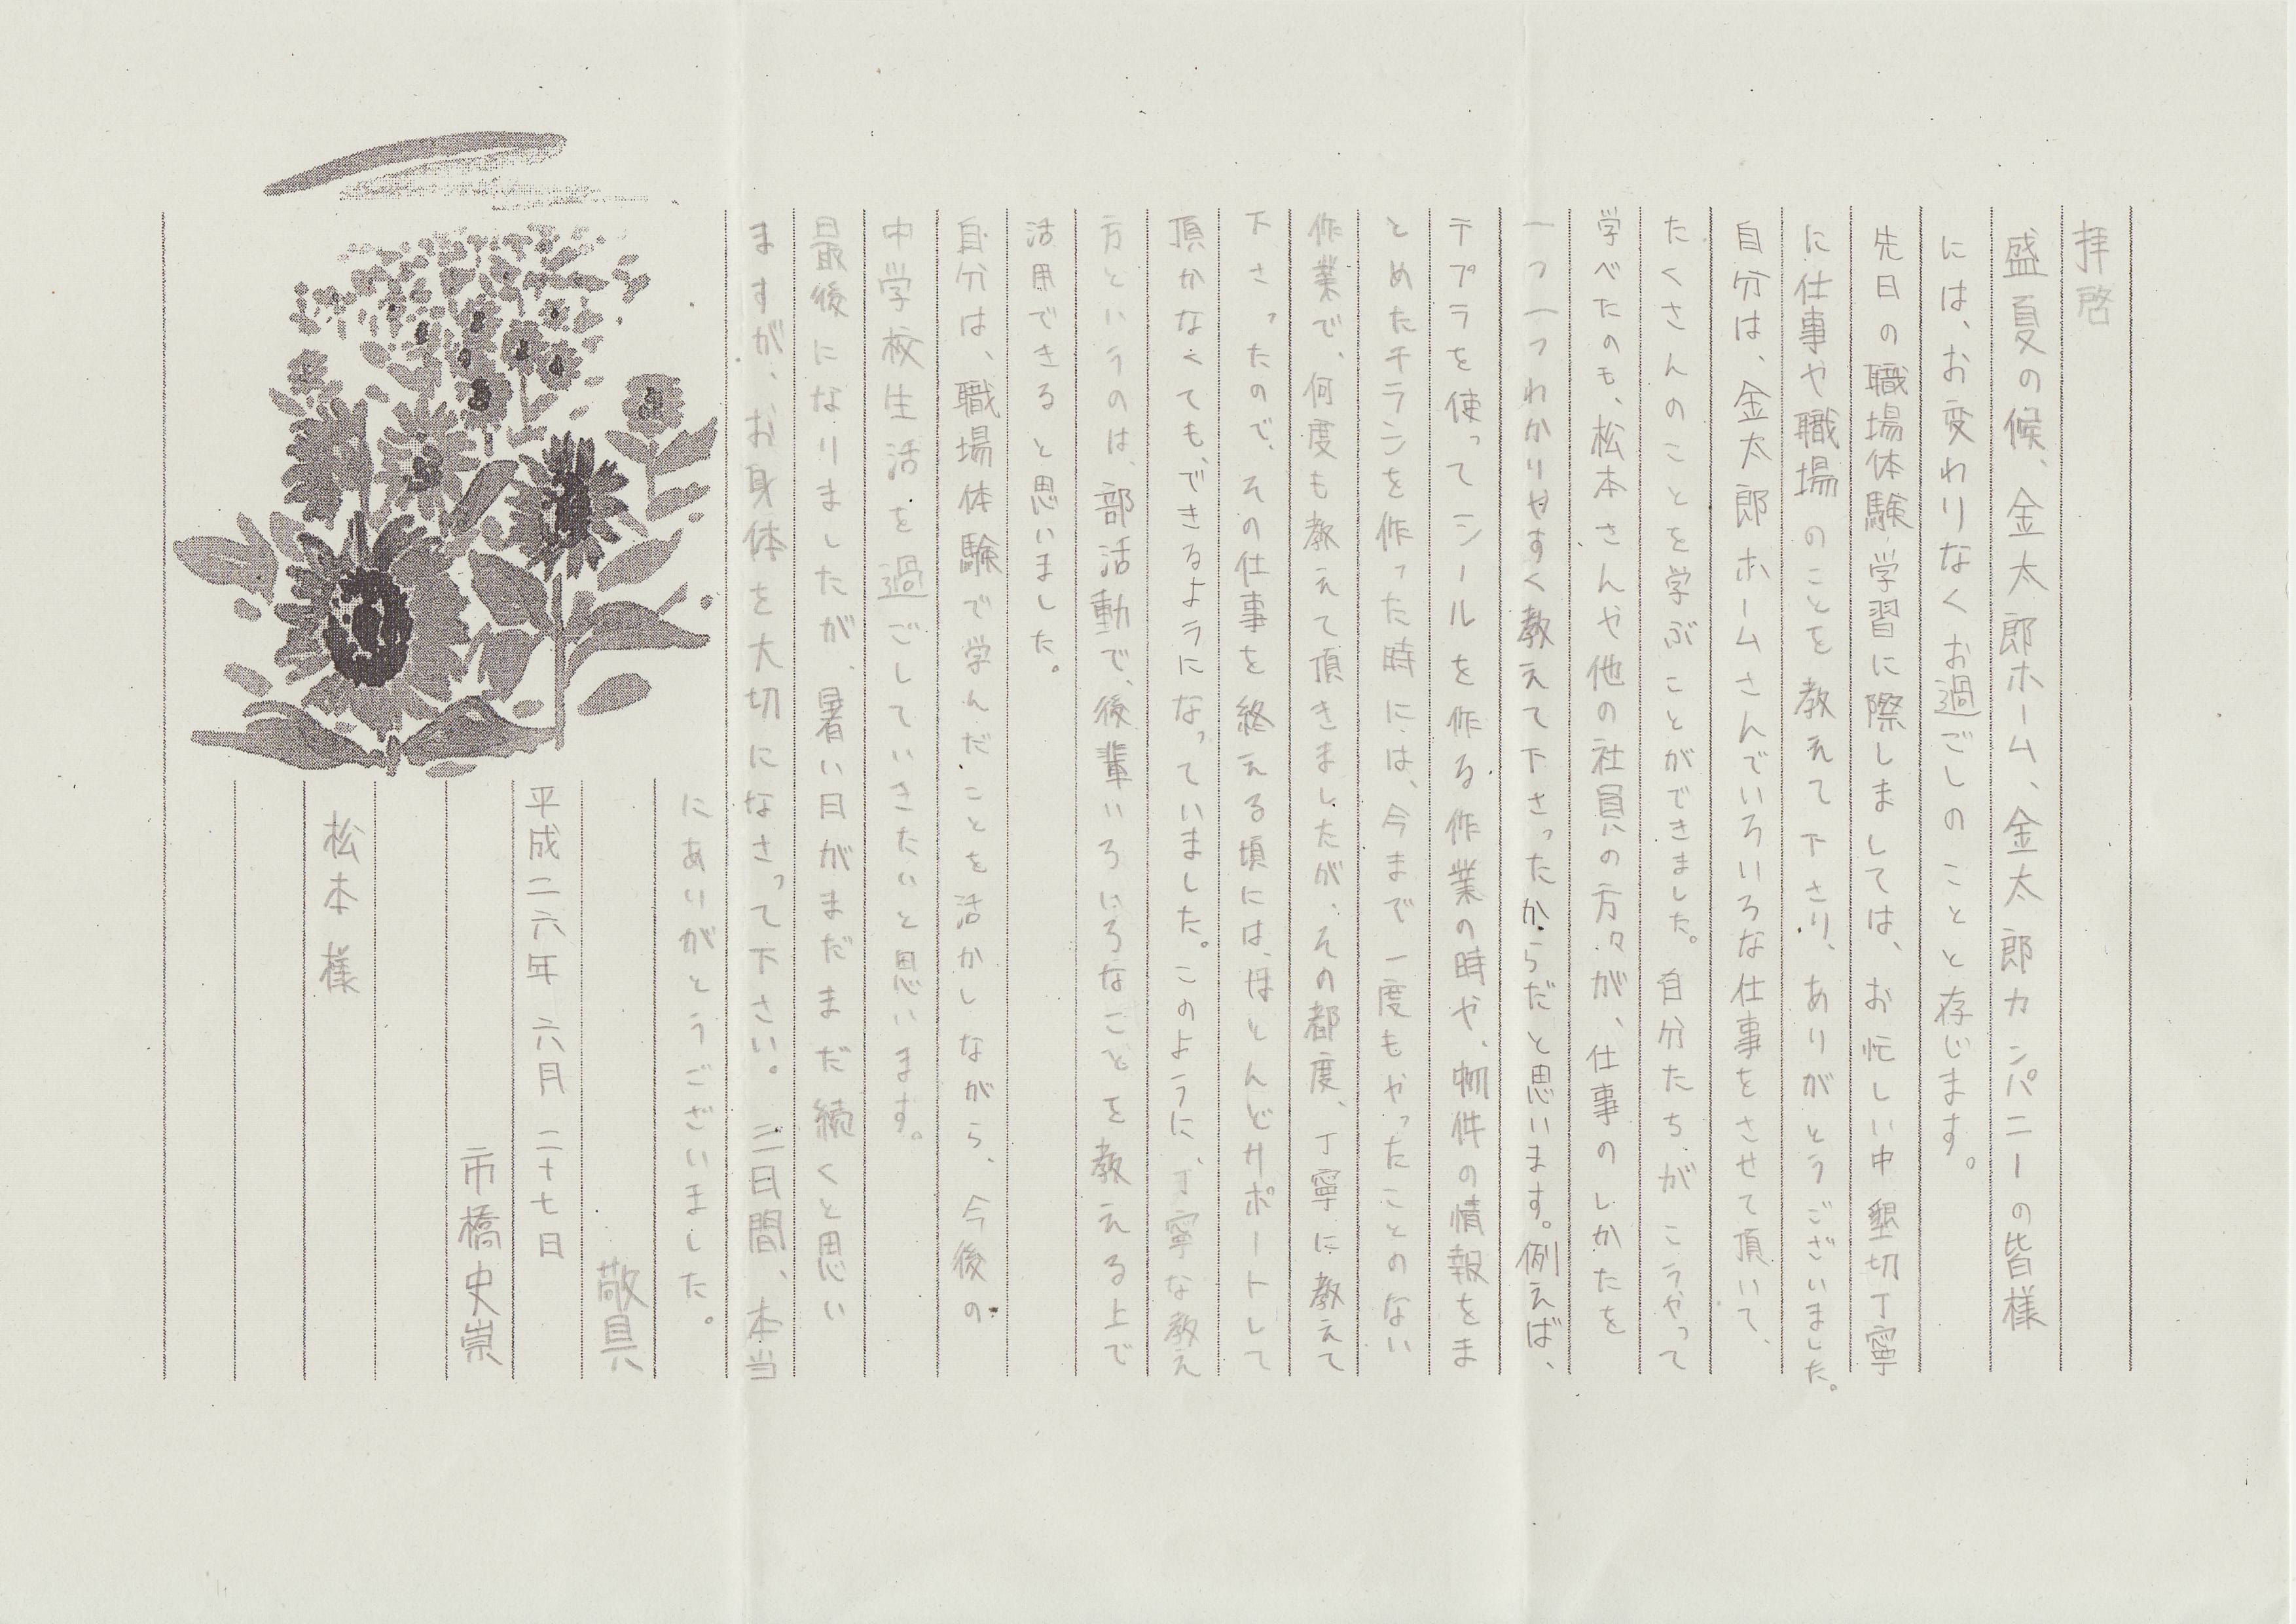 拝啓
盛夏の候、金太郎ホーム、金太郎カンパニーの皆様
には、お変わりなくお過ごしのことと存じます。
先日の職場体験学習に際しましては、お忙しい中懇切丁寧
に仕事や職場のことを教えて下さり、ありがとうございました。
自分は、金太郎ホームさんでいろいろな仕事をさせて頂いて、
たくさんのことを学ぶことができました。自分たちがこうやって
学べたのも、松本さんや他の社員の方々が、仕事のしかたを
一つ一つわかりやすく教えて下さったからだと思います。例えば、
テプラを使ってシールを作る作業の時や、物件の情報をま
とめたチラシを作った時には、今まで一度もやったことのない
作業で、何度も教えて頂きましたが、その都度、丁寧に教えて
下さったので、その仕事を終える頃には、ほとんどサポートして
頂かなくても、できるようになっていました。このように、丁寧な教え
方というのは、部活動で、後輩いろいろなことを教える上で
活用できると思いました。
自分は、職場体験で学んだことを活かしながら、今後の
中学校生活を過ごしていきたいと思います。
最後になりましたが、暑い日がまだまだ続くと思い
ますが、お身体を大切になさって下さい。三日間、本当
にありがとうございました。
敬具
平成二六年 六月 二十七日
市橋史崇
松本様